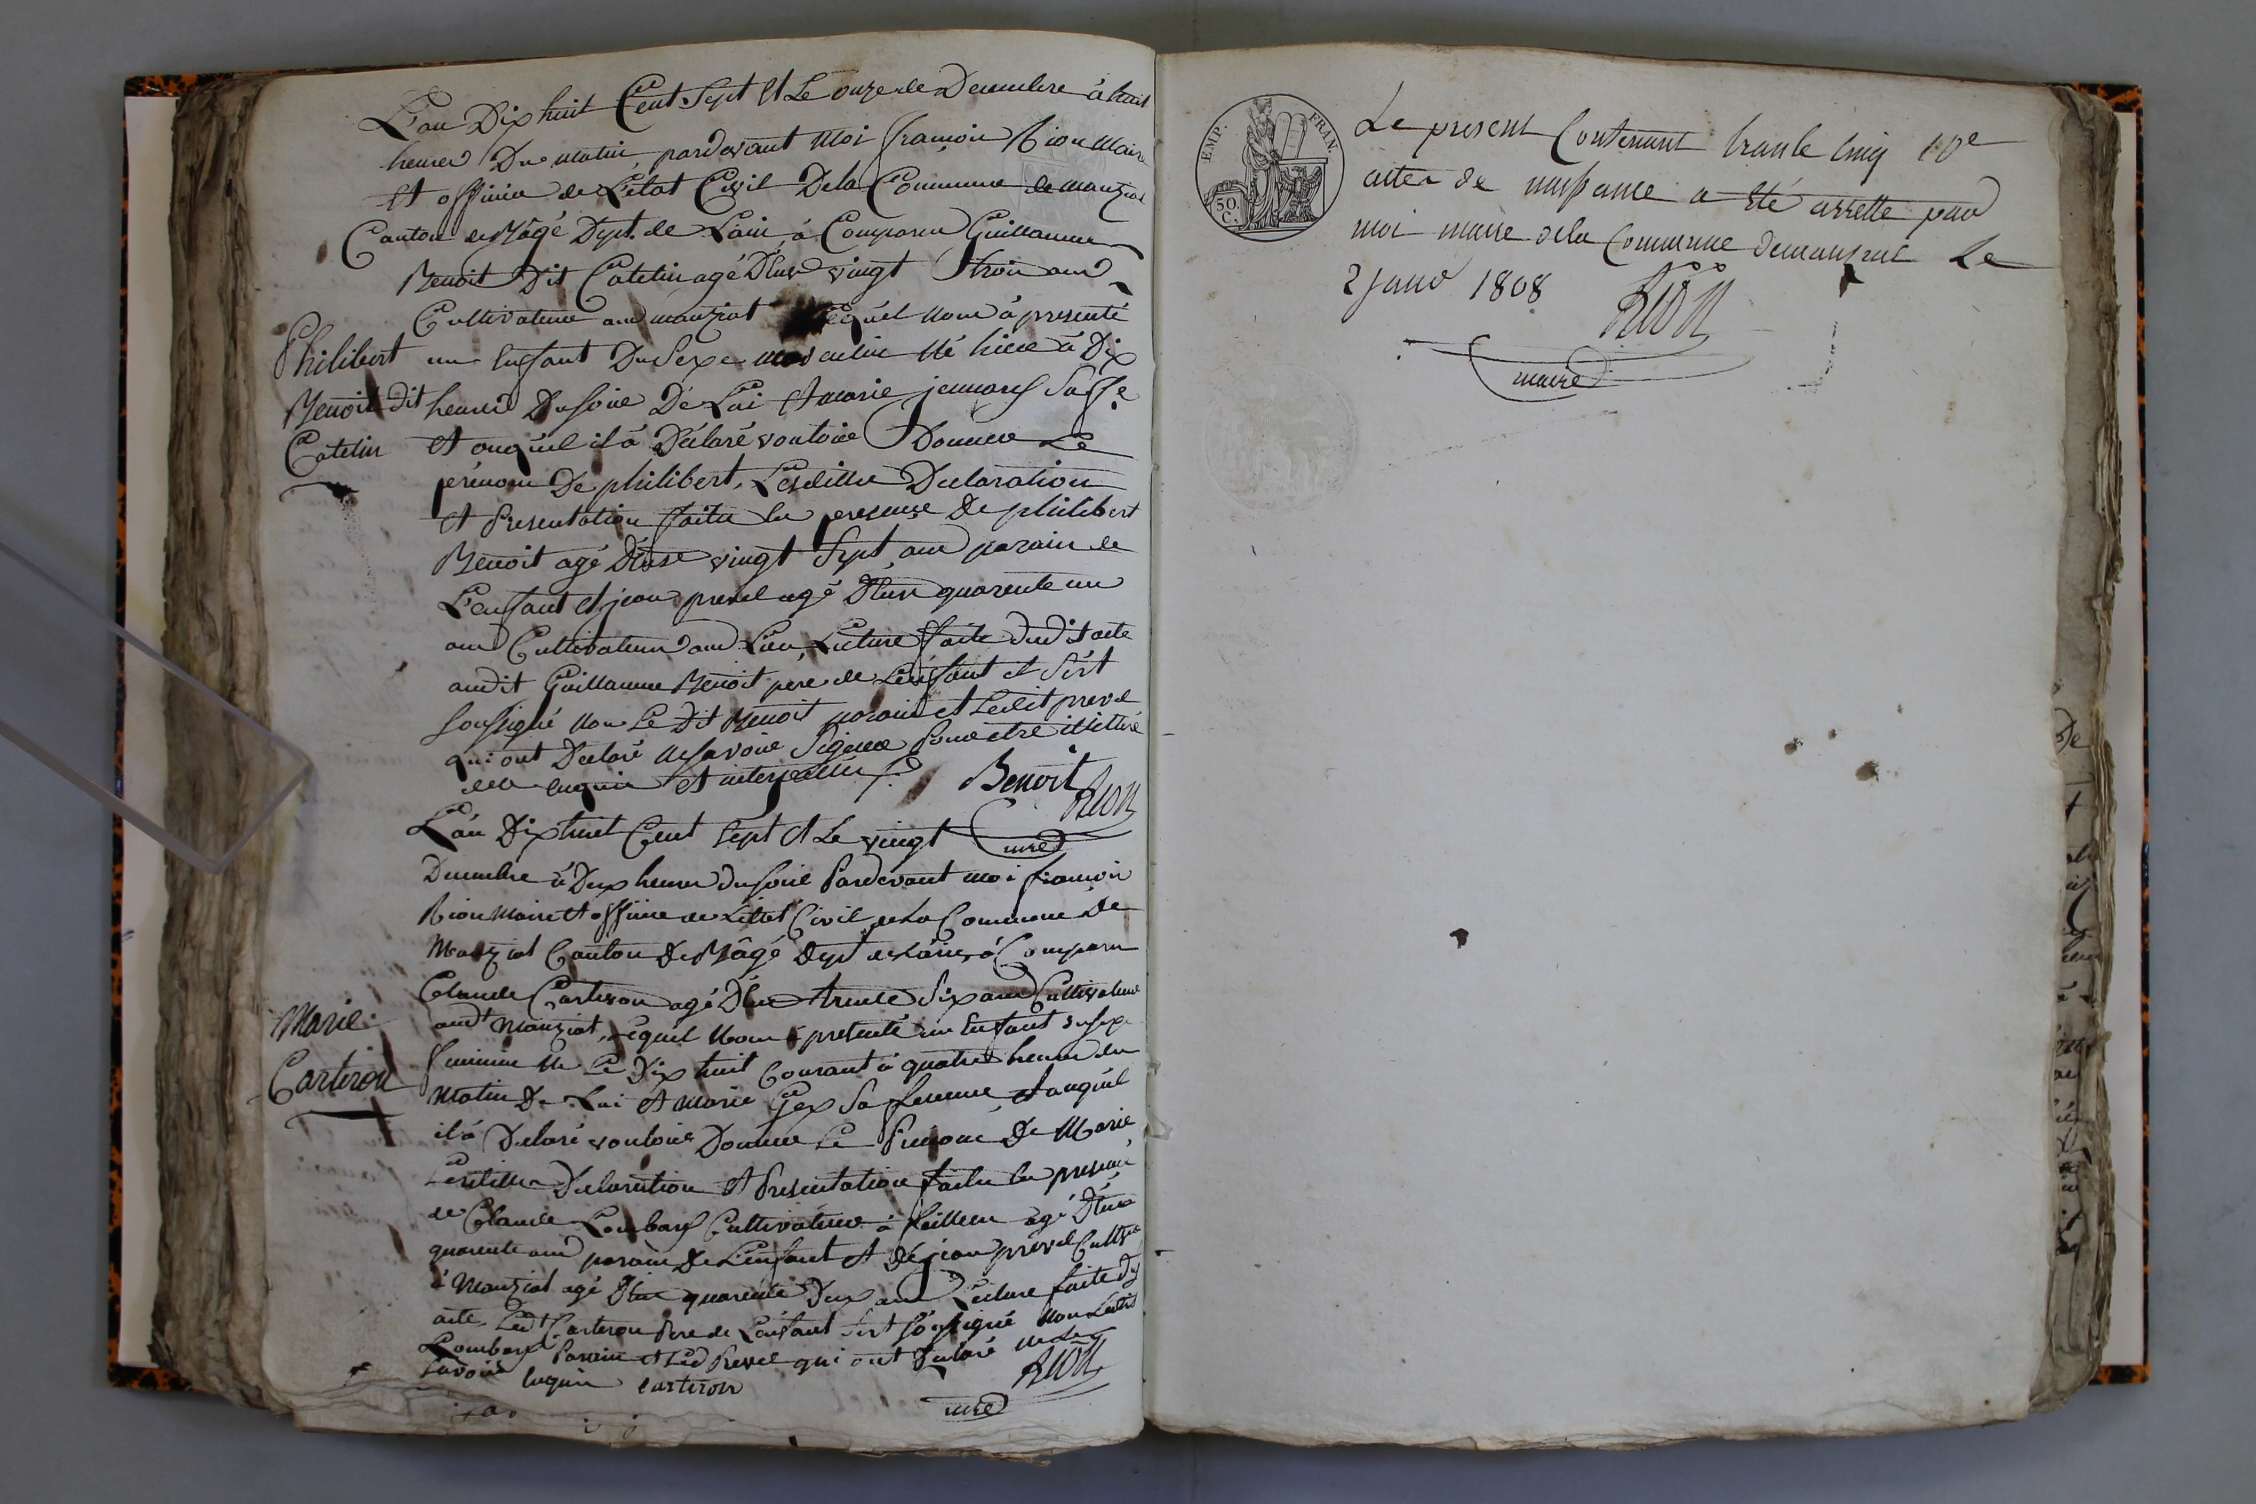 L'an Dix huit Cent Sept Et Le onze de Decembre à huit
heures Du matin, pardevant Moi françois Rion Maire
Et officier de L'état Civil De la Commune de manziat
Canton de Bâgé Dept. de L'ain, à Comparu Guillaume
Benoit Dit Catelin agé D'env vingt trois ans
Cultivateur aud manziat Lequel nous à presenté
Philibert
Benoit dit
Catelin
un Enfant Du Sexe masculin Né hier à Dix
heures Du Soir De Lui Et marie
Et auquel il à Déclaré vouloir Donner Le
prénom De philibert, Lesdittes Declaration
Et Presentation faites En presence De philibert
Benoit agé D'env vingt Sept ans parain de
L'enfant Et jean prevel agé D'env quarente un
ans Cultivateurs aud Lieu, Lecture faite dudit acte
audit Guillaume Benoit pere de L'enfant et S'est
Soussigné non Le Dit Benoit parain et Ledit prevel
qui ont Declaré ne Savoir Signer Pour etre illittéré
de ce enquis Et interpellés
Benoit
RION
mre
L'an Dix huit Cent Sept Et Le vingt
Decembre à Deux heures du Soir Pardevant moi françois
Rion Maire Et officier de L'état Civil de La Commune De
Manziat Canton De Bâgé Dept de L'ain, à Comparu
Claude Carteron agé D'env trente Six ans Cultivateur
Marie
Carteron
audt Manziat, Lequel Nous à presenté un Enfant du Sexe
feminin Né Le Dix huit Courant à quatre heures du
Matin De Lui Et Marie Gex Sa femme, Et auquel
il à Declaré vouloir Donner Le Prenom De Marie
Lesdittes Declaration Et Presentation faites En presence
de Claude Cultivateur à feillens agé D'env
quarente ans parain De L'enfant Et De jean prevel Cultivr
à Manziat agé D'env quarente Deux ans Lecture faite du
acte, Ledt Carteron Pere de L'enfant S'est Soussigné non Ledit
Parein et Led Prevel qui ont Declaré ne le
Savoir Enquis carteron
RION
mre
EMP. FRAN.
50.
C.
Le present Contenant trante cinq
actes de naissance a eté arretté par
moi maire de la Commune de manziat Le
2 janv 1808
RION
maire